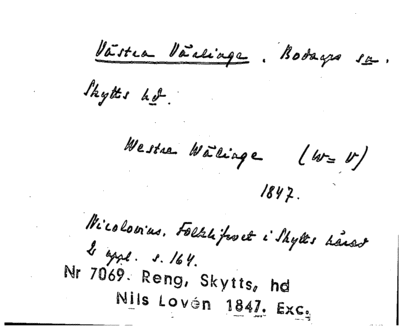 Västra Värlinge. Bodarps sn.
Skytts hd.
Westra Wälinge (W = V)
1847.
Nicolovius. Folklifvet i Skytts härad
2 uppl. s. 164.
Nr 7069. Reng, Skytts, hd
Nils Lovén 1847. Exc.